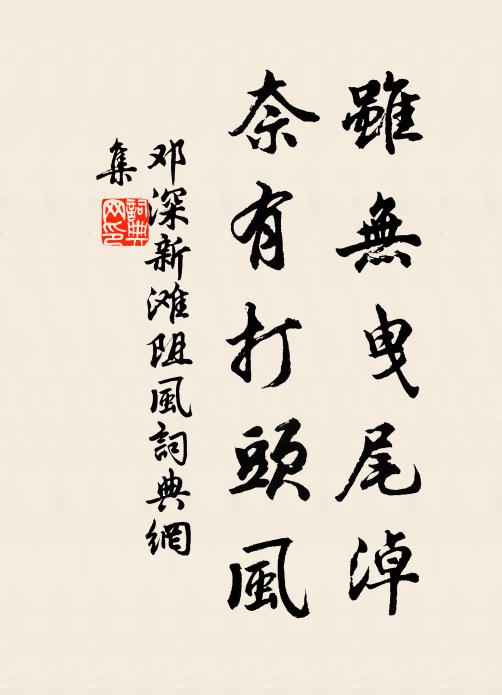 雖無曳尾淖
奈有打頭風
邓深新滩阻風詞典網
集
詞典網印